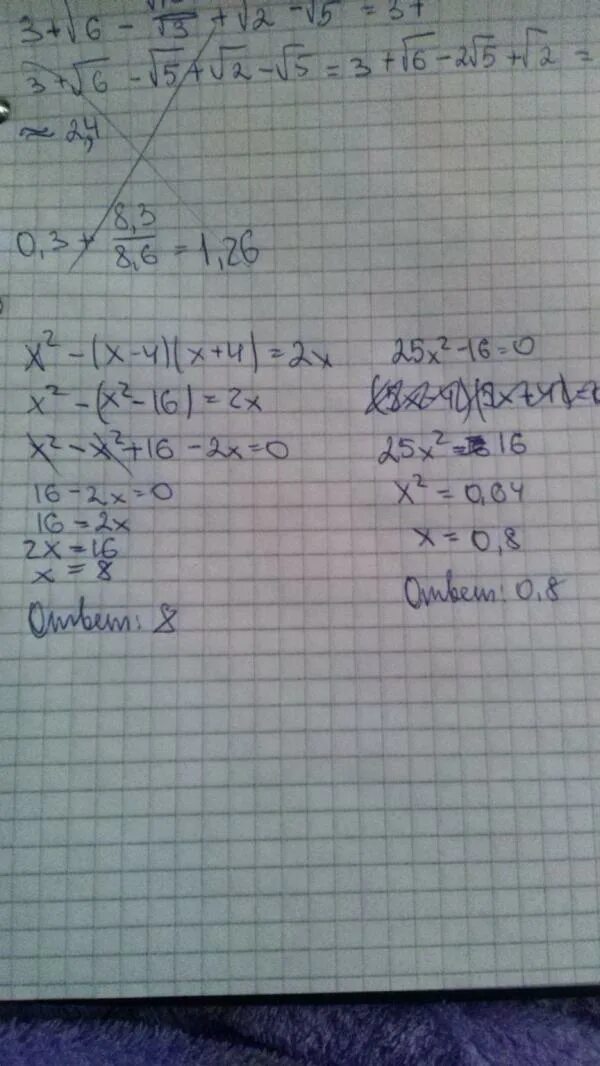 3 + √6 - √15/√3 + √2 - √5 = 3 +
3 + √6 - √5 + √2 - √5 = 3 + √6 - 2√5 + √2 =
≈ 2,4
0,3 + 8,3/8,6 = 1,26
x² - (x-4)(x+4) = 2x
x² - (x² - 16) = 2x
x² - x² + 16 - 2x = 0
16 - 2x = 0
16 = 2x
2x = 16
x = 8
Ответ: 8
25x² - 16 = 0
25x² = 16
x² = 0,64
x = 0,8
Ответ: 0,8